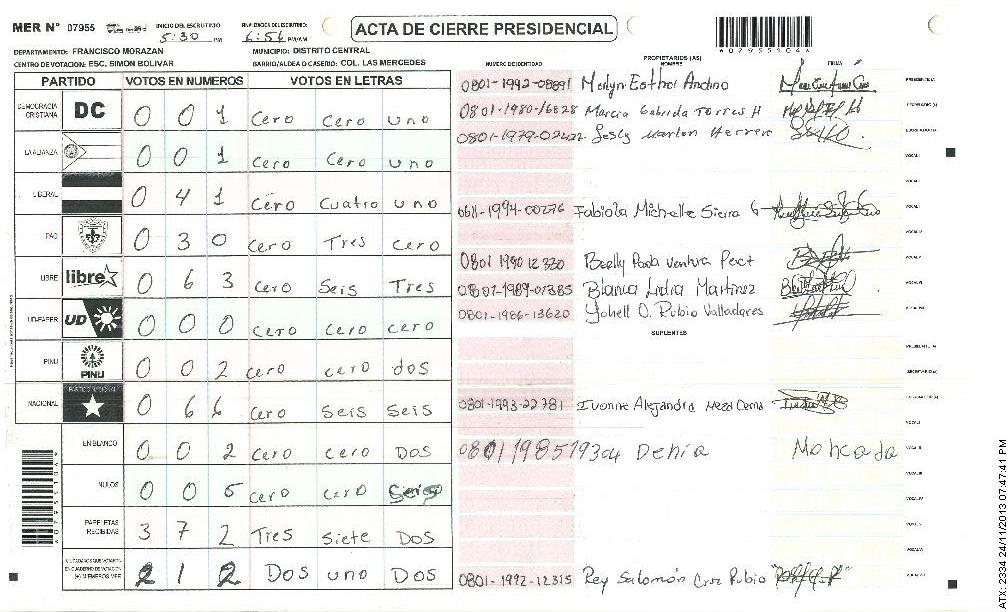 MER N° 07955 INICIO DEL ESCRUTINIO 5:30 PM FINALIZACION DEL ESCRUTINIO: 6:56 PM/AM ACTA DE CIERRE PRESIDENCIAL
A07955104A
DEPARTAMENTO: FRANCISCO MORAZAN MUNICIPIO: DISTRITO CENTRAL
CENTRO DE VOTACION: ESC. SIMON BOLIVAR BARRIO/ALDEA O CASERIO: COL. LAS MERCEDES
PARTIDO VOTOS EN NUMEROS VOTOS EN LETRAS
DEMOCRACIA CRISTIANA DC 0 0 1 Cero Cero uno
LA ALIANZA 0 0 1 Cero Cero uno
LIBERAL 0 4 1 Cero Cuatro uno
PAC 0 3 0 Cero Tres Cero
LIBRE libre 0 6 3 Cero Seis Tres
UD-FAPER UD 0 0 0 Cero Cero Cero
PINU PINU 0 0 2 Cero Cero dos
NACIONAL 0 6 6 Cero Seis Seis
EN BLANCO 0 0 2 Cero Cero DOS
NULOS 0 0 5 Cero Cero
PAPELETAS RECIBIDAS 3 7 2 Tres Siete DOS
CIUDADANOS QUE VOTARON EN CUADERNO DE VOTACION (+) MIEMBROS MER 2 1 2 DOS uno DOS
NUMERO DE IDENTIDAD PROPIETARIOS (AS) NOMBRE FIRMA
0801-1992-08891 Merlyn Esther Andino PRESIDENTE(A)
0801-1980-16828 Marcia Gabriela Torres H SECRETARIO (A)
0801-1979-02422 Lesly Marlon Herrera ESCRUTADOR(A)
VOCAL I
0611-1994-00276 Fabiola Michelle Sierra G
0801 1990 12330 Ventura
0801-1989-01385 Blanca Lidia Martinez
0801-1986-13620 Yohell O. Rubio Valladares
SUPLENTES
PRESIDENTE(A)
SECRETARIO(A)
0801-1993-22781 Ivonne Alejandra Meza Cerna
0801198519304 Denia Moncada
0801-1992-12315 Rey Salomón Cruz Rubio
A07955104A
ATX: 2334 24/11/2013 07:47:41 PM